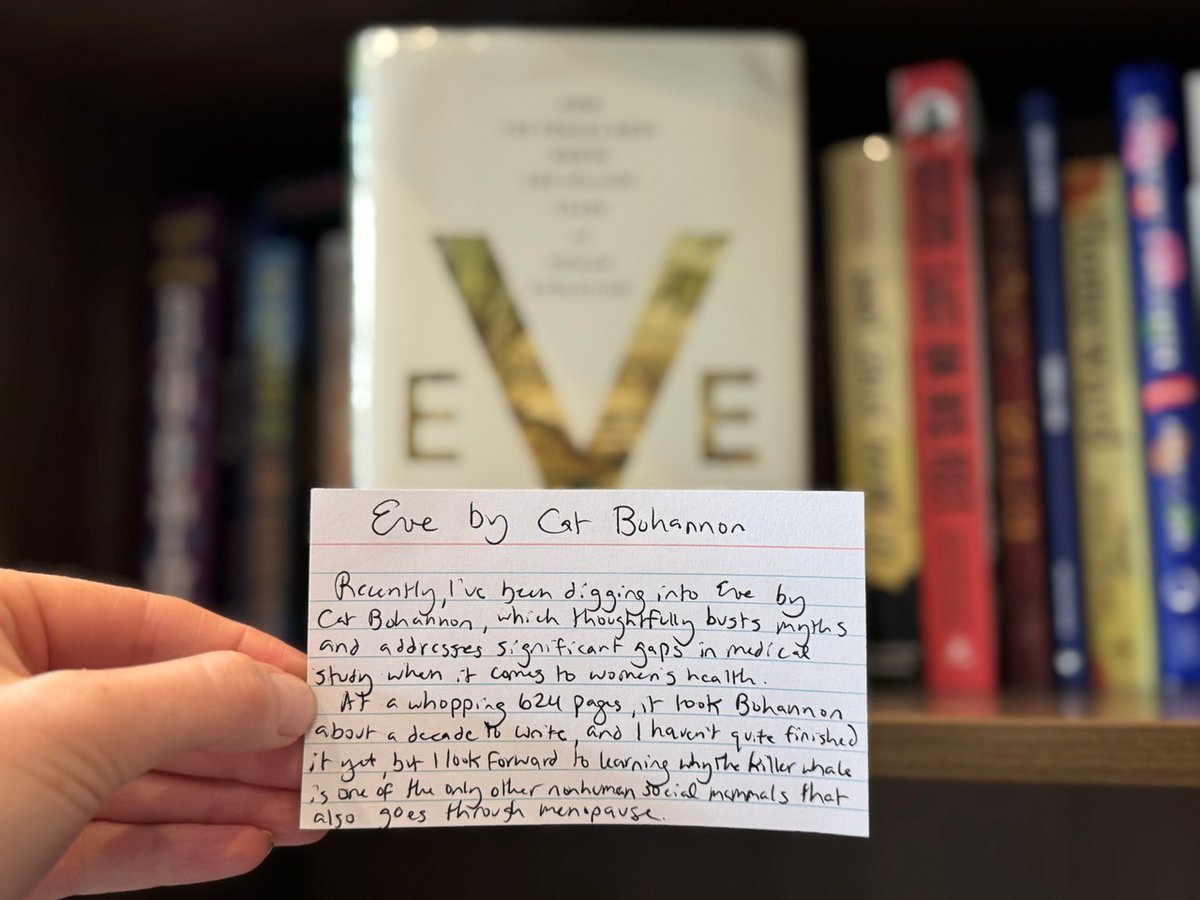 EVE
Eve by Cat Bohannon
Recently, I've been digging into Eve by
Cat Bohannon, which thoughtfully busts myths
and addresses significant gaps in medical
study when it comes to women's health.
At a whopping 624 pages, it took Bohannon
about a decade to write, and I haven't quite finished
it yet, but I look forward to learning why the killer whale
is one of the only other nonhuman social mammals that
also goes through menopause.